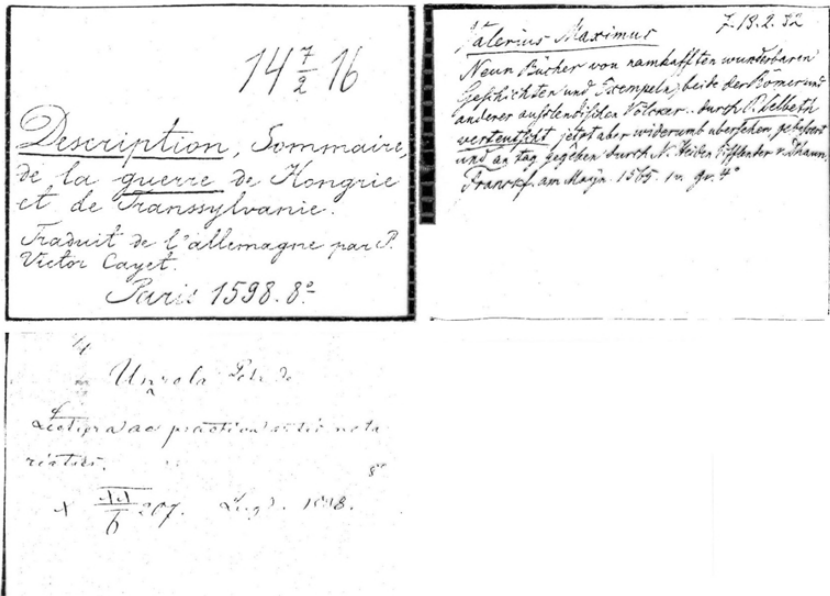 14 7/2 16
Description, Sommaire,
de la guerre de Hongrie
et de Transsylvanie.
Traduit de l'allemagne par P.
Victor Cayet.
Paris 1598. 8°
7.13.2.32
Valerius Maximus
Neun Bücher von namhafften wunderbaren
Geschichten und Exempeln, beide der Römer und
anderer ausslendischen Völcker.. durch P. Selbeth
verteutscht jetzt aber widerumb übersehen gebessert
und an tag gegeben durch N. Heiden Eifflender v. Dhaun
Franckf. am Mayn. 1565. 1 v. gr. 4°
Unzola Petr. de
ac practica artis nota
riatus.
8°
x 207. Lugd. 1598.